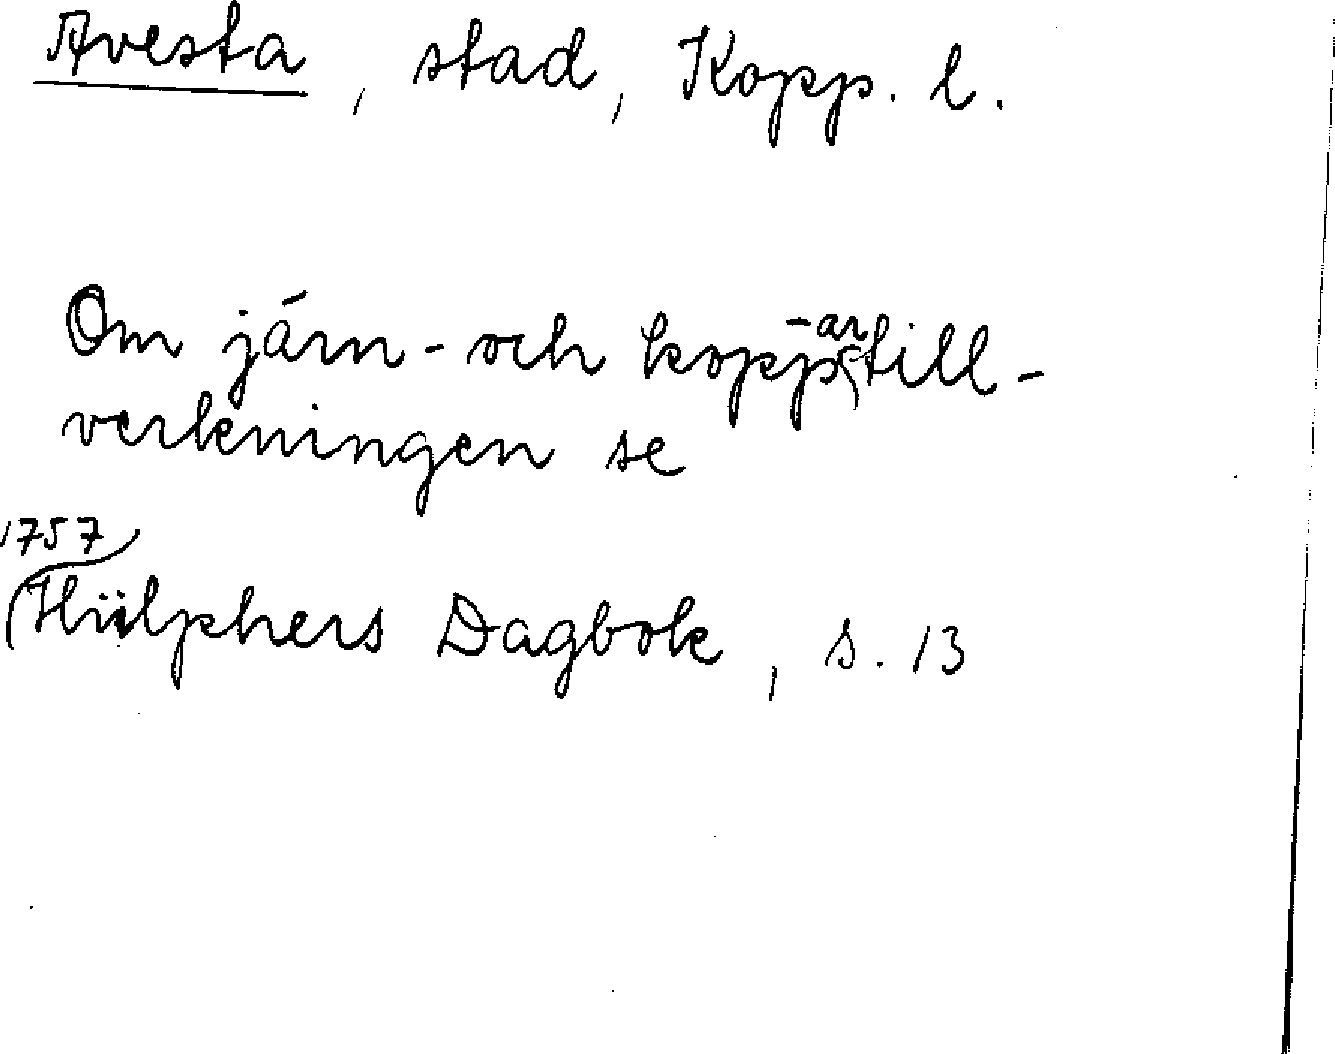 Avesta, stad, Kopp. l.
Om järn- och kopp-artill-
verkningen se
1757
Hülphers Dagbok, s. 13